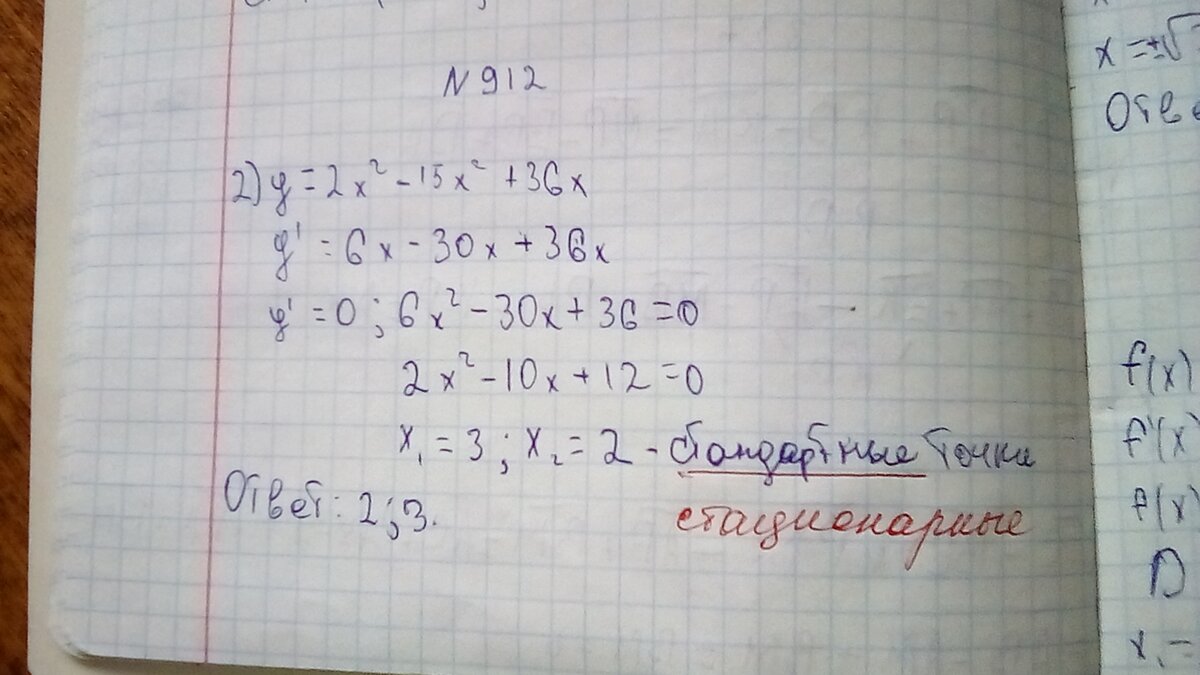 N 912
2) y = 2x² - 15x² + 36x
y' = 6x - 30x + 36x
y' = 0 ; 6x² - 30x + 36 = 0
2x² - 10x + 12 = 0
x₁ = 3 ; x₂ = 2 - стандартные точки
Ответ: 2;3.
стационарные
x = ±√
Отве
f(x)
f'(x)
f(x)
D
x₁ =